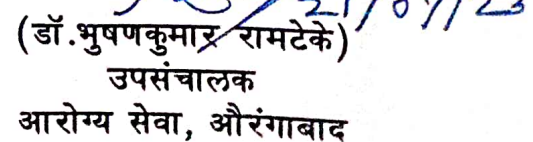 21/07/23
(डॉ.भुषणकुमार रामटेके)
उपसंचालक
आरोग्य सेवा, औरंगाबाद